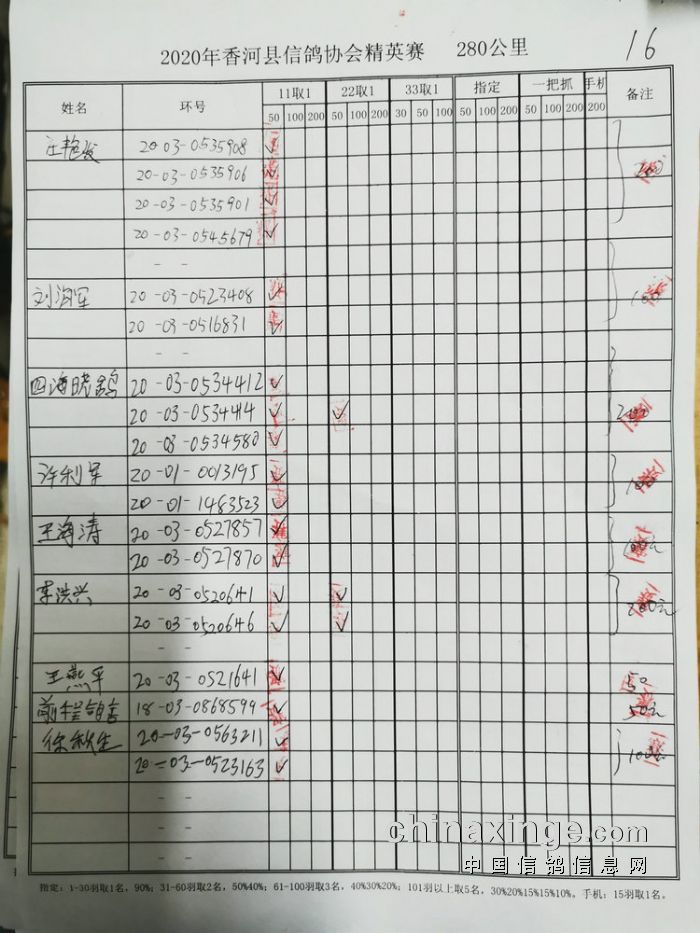 2020年香河县信鸽协会精英赛 280公里 16
姓名 环号 11取1 22取1 33取1 指定 一把抓 手机 备注
50 100 200 50 100 200 30 50 100 50 100 200 50 100 200 200
汪艳发 20-03-0535908 ✓
20-03-0535906 ✓
20-03-0535901 ✓
20-03-0545679 ✓
- -
刘海军 20-03-0523408 ✓
20-03-0516831 ✓
- -
四海 20-03-0534412 ✓
20-03-0534414 ✓ ✓
20-03-0534580 ✓
许利军 20-01-0013195 ✓
20-01-1483523 ✓
王海清 20-03-0527857 ✓
20-03-0527870 ✓
李洪兴 20-03-0520641 ✓ ✓
20-03-0520646 ✓ ✓
- -
王燕平 20-03-0521641 ✓
18-03-0868599 ✓ 50元
徐秋生 20-03-0563211 ✓
20-03-0523163 ✓
- -
- -
- -
指定：1-30羽取1名，90%；31-60羽取2名，50%40%；61-100羽取3名，40%30%20%；101羽以上取5名，30%20%15%15%10%。手机：15羽取1名。
chinaxinge.com
中国信鸽信息网